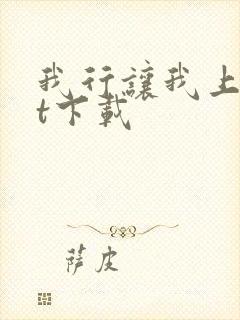 我行讓我上
t下載
薩皮